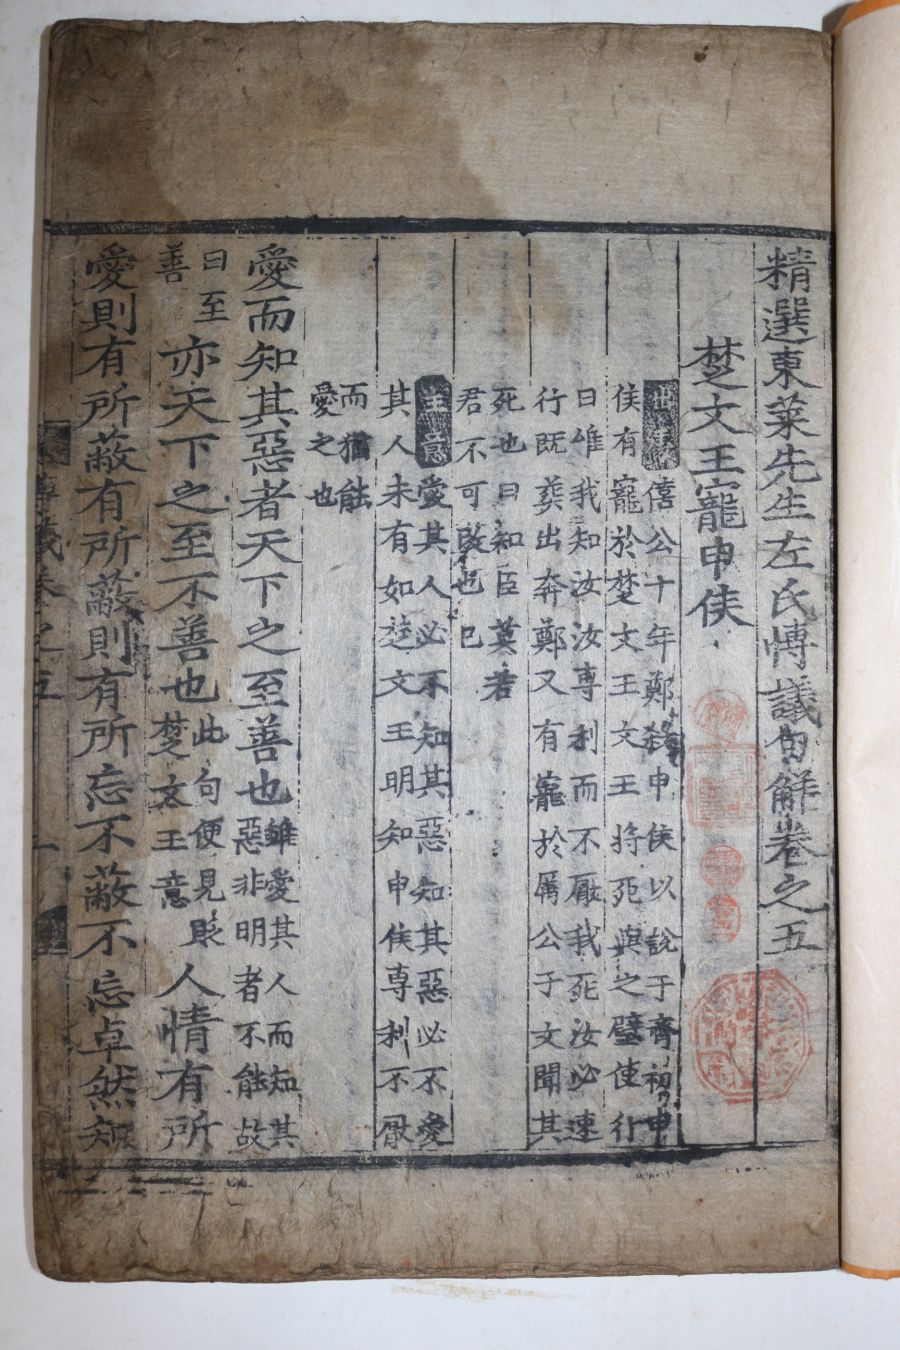 精選東萊先生左氏愽議句解卷之五
楚文王寵申侯
出處僖公十年鄭殺申侯以說于齊初申
侯有寵於楚文王文王將死與之璧使行
曰唯我知汝汝專利而不厭我死汝必速
行既葬出奔鄭又有寵於厲公子文聞其
死也曰知臣莫若
君不可改也已
主意愛其人必不知其惡知其惡必不愛
其人未有如楚文王明知申侯專利不厭
而猶能
愛之也
愛而知其惡者天下之至善也雖愛其人而知其
惡非明者不能故
曰至
善亦天下之至不善也此句便見貶
楚文王意人情有所
愛則有所蔽有所蔽則有所忘不蔽不忘卓然知
議卷之五
一